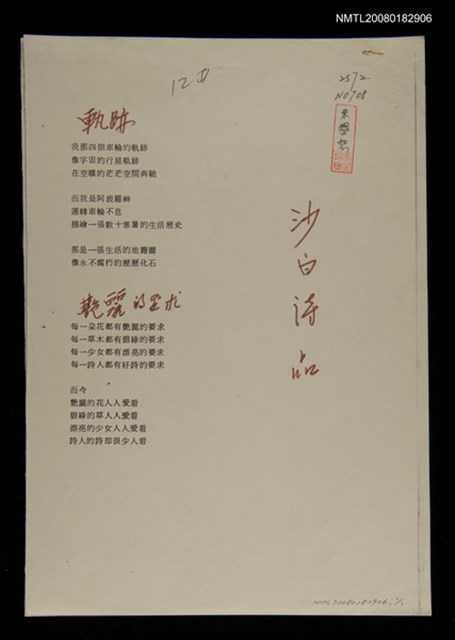 NMTL20080182906
12
2572
NO708
沙白詩品
軌跡
我那四個車輪的軌跡
像宇宙的行星軌跡
在空曠的茫茫空間奔馳
而我是阿波羅神
運轉車輪不息
描繪一張數十寒暑的生活歷史
那是一張生活的地籍圖
像永不腐朽的歷歷化石
艷麗的要求
每一朵花都有艷麗的要求
每一草木都有碧綠的要求
每一少女都有漂亮的要求
每一詩人都有好詩的要求
而今
艷麗的花人人愛看
碧綠的草人人愛看
漂亮的少女人人愛看
詩人的詩却很少人看
NMTL20080182906, 1/1